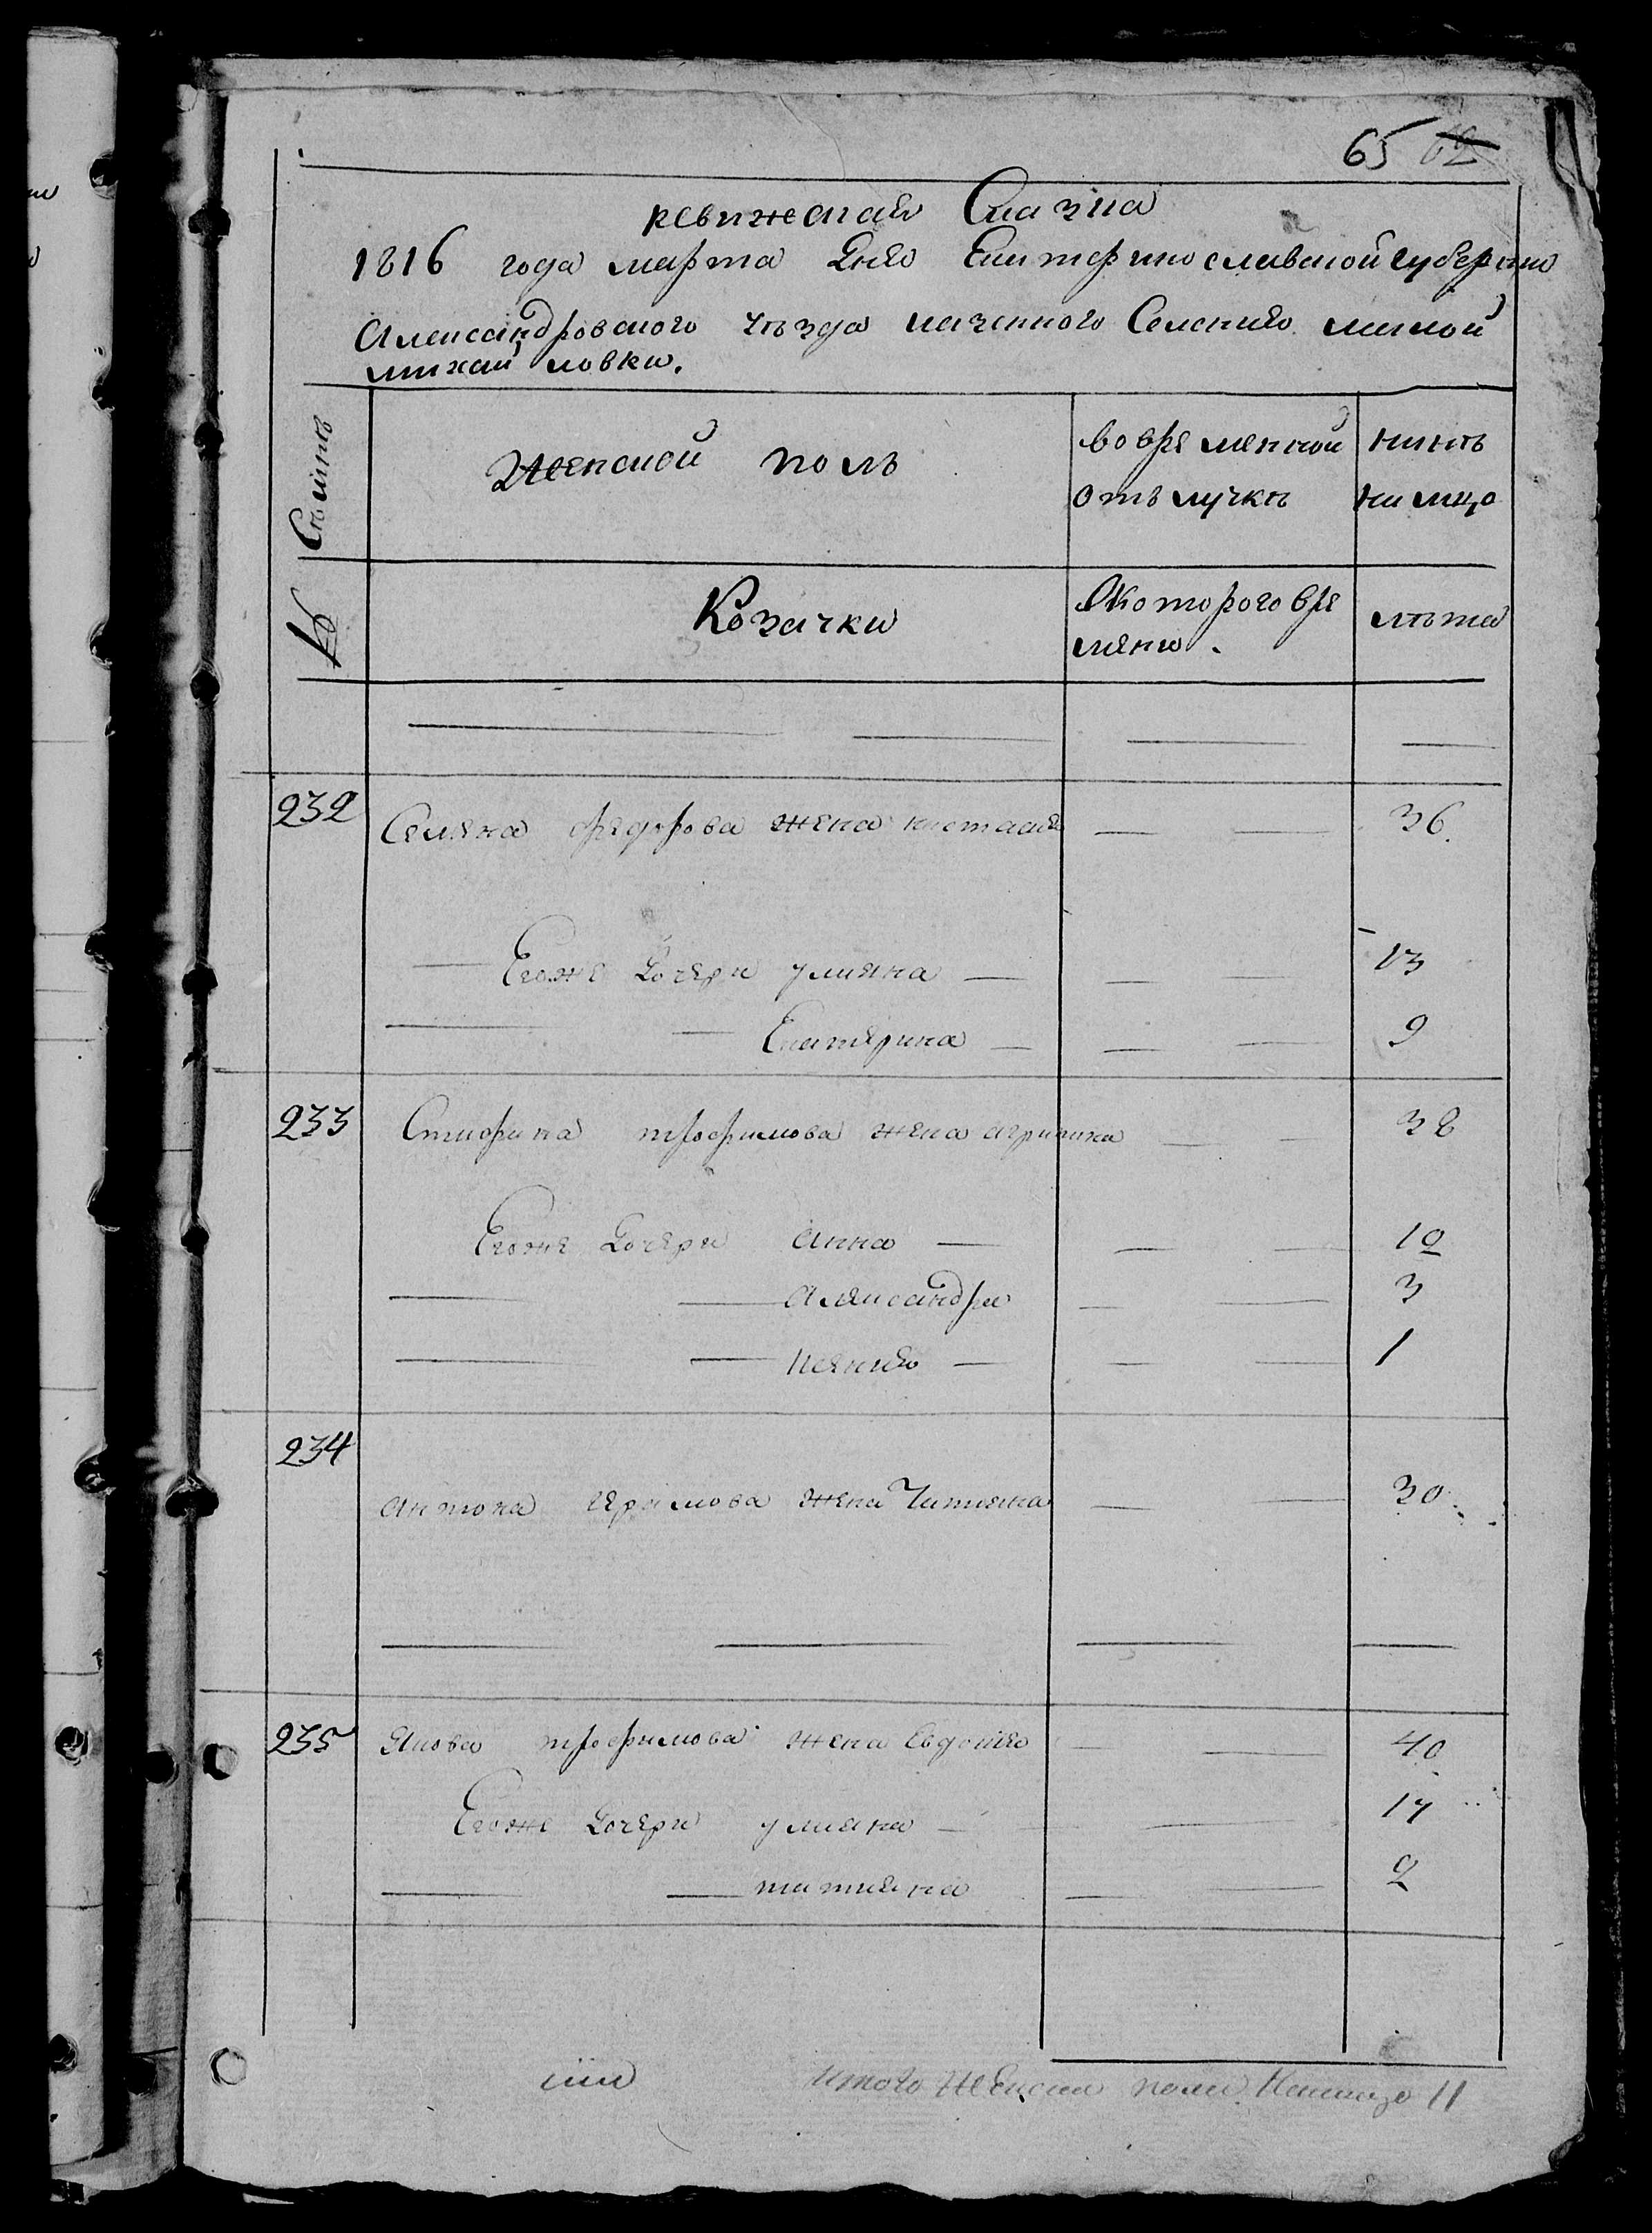 65 62
ревижская Сказка
1816 года марта дня Екатеринославской губернии
Александровского уезда казенного Селения малой
михайловки.
Семьи
женской полъ
вовременной отълучкъ
нынъ налицо
№
Козачки
Скоторого времяни.
лъта
232 Семена федорова жена настася 36.
Егоже дочери улияна 13
Екатерина 9
233 Спирина трофимова жена агрипина 38
Егоже дочери анна 10
Александра 3
ксения 1
234
антона ерамова жена Татияна 30
235 Якова трофимова жена Евдокия 40
Егоже дочери улияна 14
татияна 2
итого женска пола Налицо 11